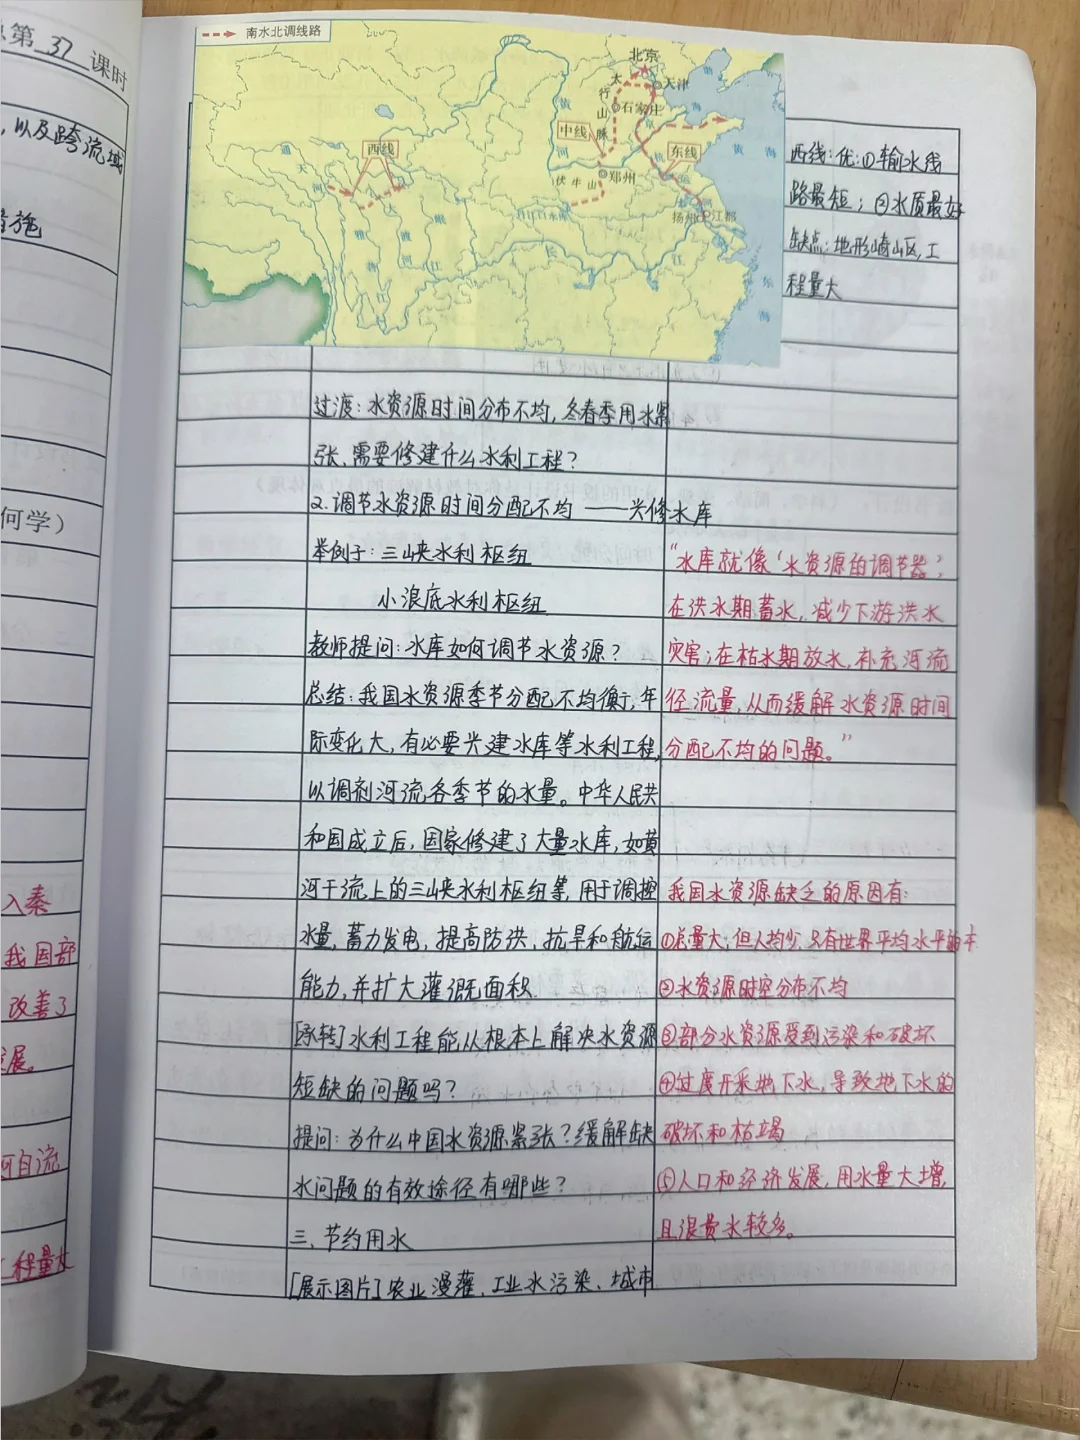 总第 37 课时
，以及跨流域
措施
何学）
入秦
我国部
改善了
发展。
河自流
工程量大
南水北调线路
北京
天津
太行山脉
石家庄
渤海
黄河
中线
东线
京杭运河
黄海
西线
郑州
伏牛山
通天河
雅砻江
大渡河
岷江
丹江口水库
扬州
江都
长江
东海
西线：优：①输水线
路最短；②水质最好
缺点：地形崎山区，工
程量大
过渡：水资源时间分布不均，冬春季用水紧
张，需要修建什么水利工程？
2.调节水资源时间分配不均 ——兴修水库
举例子：三峡水利枢纽
小浪底水利枢纽
教师提问：水库如何调节水资源？
总结：我国水资源季节分配不均衡，年
际变化大，有必要兴建水库等水利工程，
以调剂河流各季节的水量。中华人民共
和国成立后，国家修建了大量水库，如黄
河干流上的三峡水利枢纽等，用于调控
水量，蓄力发电，提高防洪，抗旱和航运
能力，并扩大灌溉面积.
[承转]水利工程能从根本上解决水资源
短缺的问题吗？
提问：为什么中国水资源紧张？缓解缺
水问题的有效途径有哪些？
三、节约用水
[展示图片]农业漫灌、工业水污染、城市
“水库就像‘水资源的调节器’，
在洪水期蓄水，减少下游洪水
灾害；在枯水期放水，补充河流
径流量，从而缓解水资源时间
分配不均的问题。”
我国水资源缺乏的原因有：
①总量大；但人均少，只有世界平均水平的
②水资源时空分布不均
③部分水资源受到污染和破坏
④过度开采地下水，导致地下水的
破坏和枯竭
⑤人口和经济发展，用水量大增，
且浪费水较多。